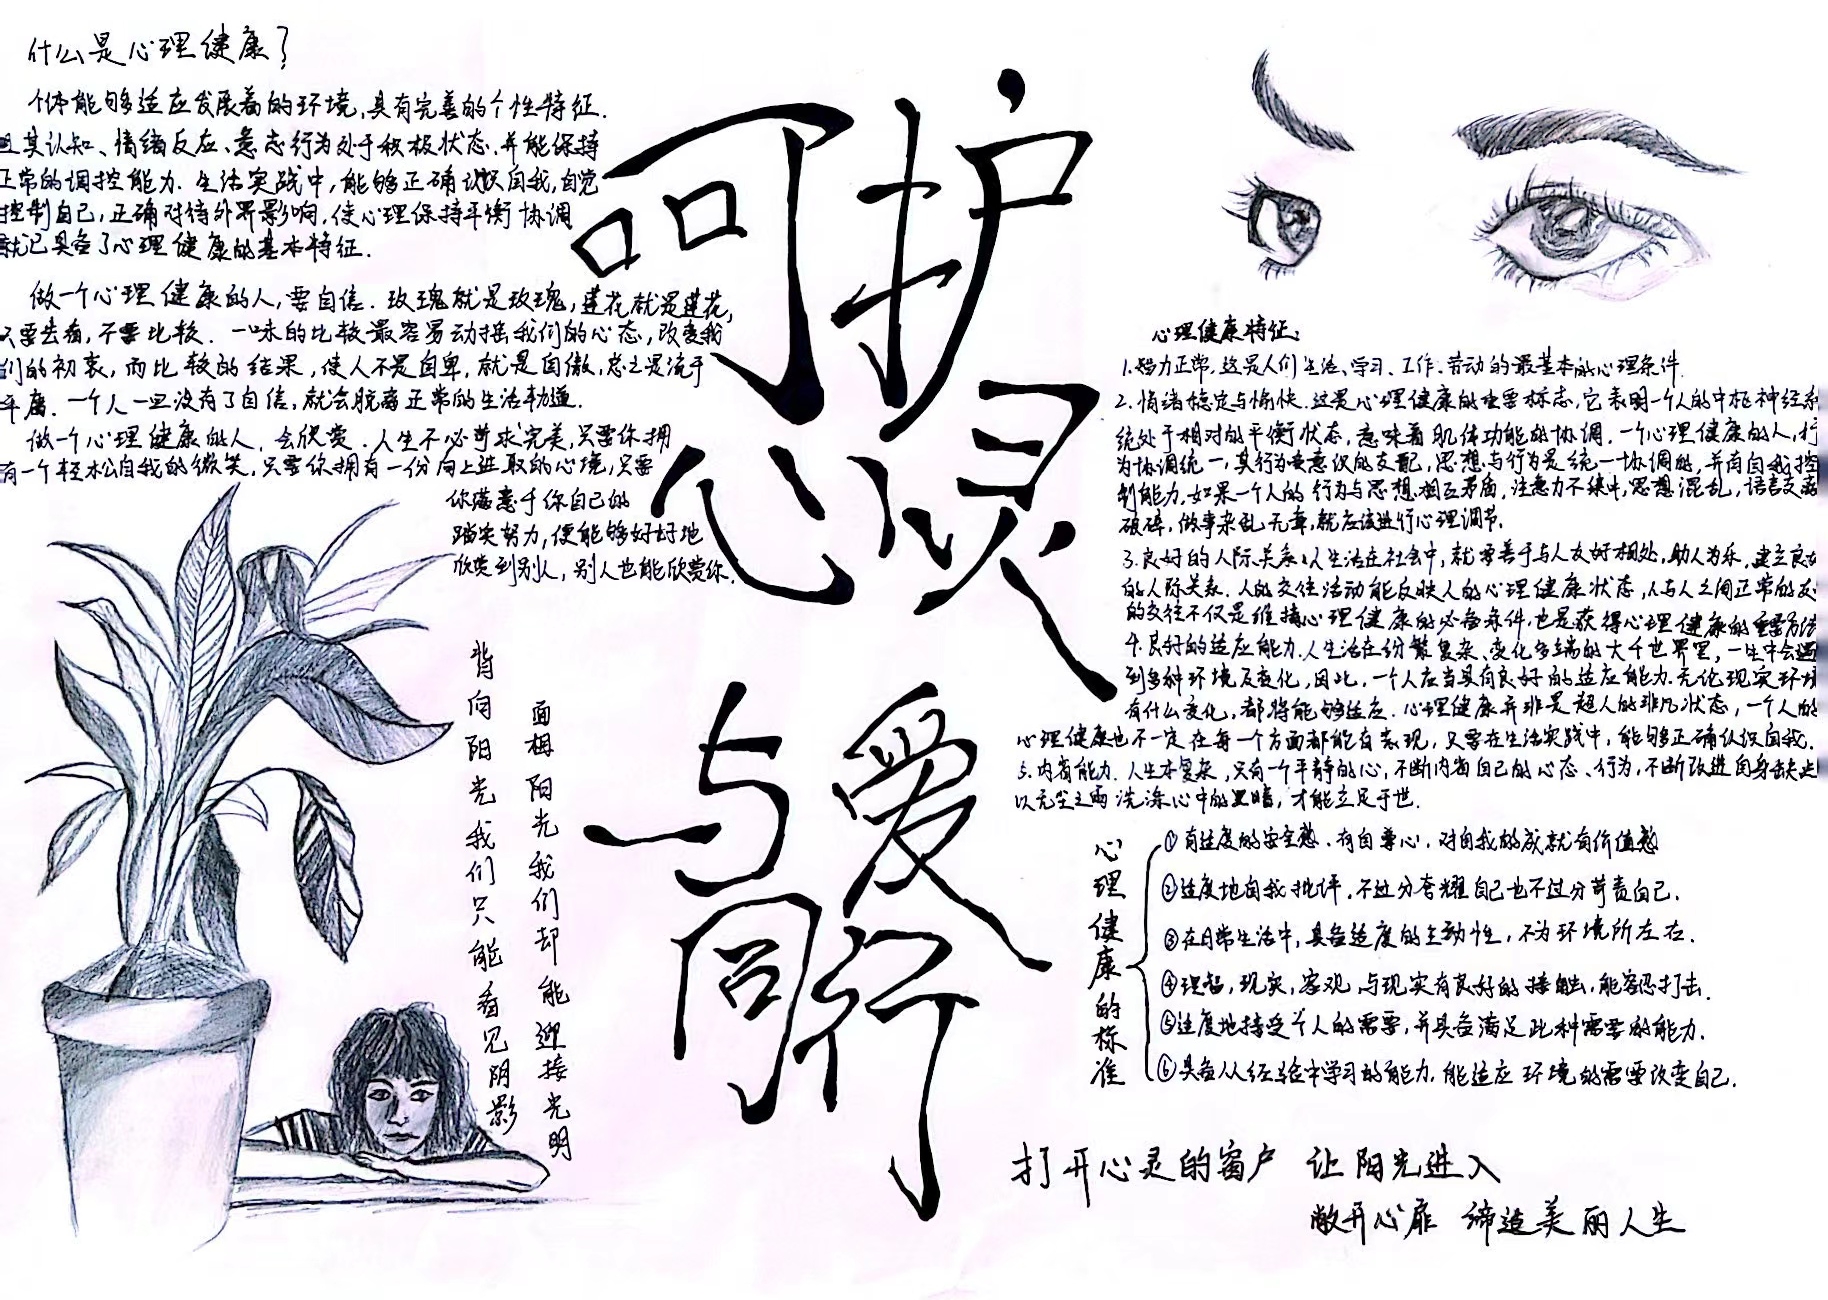 什么是心理健康？
个体能够适应发展着的环境，具有完善的个性特征.
且其认知、情绪反应、意志行为处于积极状态.并能保持
正常的调控能力.生活实践中,能够正确认识自我,自觉
控制自己,正确对待外界影响,使心理保持平衡协调
就已具备了心理健康的基本特征.
做一个心理健康的人,要自信.玫瑰就是玫瑰,莲花就是莲花,
只要去看,不要比较.一味的比较最容易动摇我们的心态,改变我
们的初衷,而比较的结果,使人不是自卑,就是自傲,总之是流于
平庸.一个人一旦没有了自信,就会脱离正常的生活轨道.
做一个心理健康的人,会欣赏.人生不必苛求完美,只要你拥
有一个轻松自我的微笑,只要你拥有一份向上进取的心境,只要
你满意于你自己的
踏实努力,便能够好好地
欣赏到别人,别人也能欣赏你.
背向阳光我们只能看见阴影
面相阳光我们却能迎接光明
呵护
心灵
与爱
同行
心理健康特征:
1.智力正常.这是人们生活、学习、工作、劳动的最基本的心理条件.
2.情绪稳定与愉快.这是心理健康的重要标志,它表明一个人的中枢神经系
统处于相对的平衡状态,意味着肌体功能的协调.一个心理健康的人,行
为协调统一,其行为受意识的支配,思想与行为是统一协调的,并有自我控
制能力.如果一个人的行为与思想相互矛盾,注意力不集中,思想混乱,语言支离
破碎,做事杂乱无章,就应该进行心理调节.
3.良好的人际关系:人生活在社会中,就要善于与人友好相处,助人为乐,建立良好
的人际关系.人的交往活动能反映人的心理健康状态,人与人之间正常的友
的交往不仅是维持心理健康的必备条件,也是获得心理健康的重要方法
4.良好的适应能力.人生活在纷繁复杂、变化多端的大千世界里,一生中会遇
到多种环境及变化,因此,一个人应当具有良好的适应能力.无论现实环境
有什么变化,都将能够适应.心理健康并非是超人的非凡状态,一个人的
心理健康也不一定在每一个方面都能有表现,只要在生活实践中,能够正确认识自我.
5.内省能力.人生本复杂,只有一个平静的心,不断内省自己的心态、行为,不断改进自身缺点
以无尘之雨洗涤心中的黑暗,才能立足于世.
心理健康的标准
①有适度的安全感.有自尊心,对自我的成就有价值感
②适度地自我批评,不过分夸耀自己也不过分苛责自己.
③在日常生活中,具备适度的主动性,不为环境所左右.
④理智,现实,客观,与现实有良好的接触,能容忍打击.
⑤适度地接受个人的需要,并具备满足此种需要的能力.
⑥具备从经验中学习的能力,能适应环境的需要改变自己.
打开心灵的窗户 让阳光进入
敞开心扉 缔造美丽人生